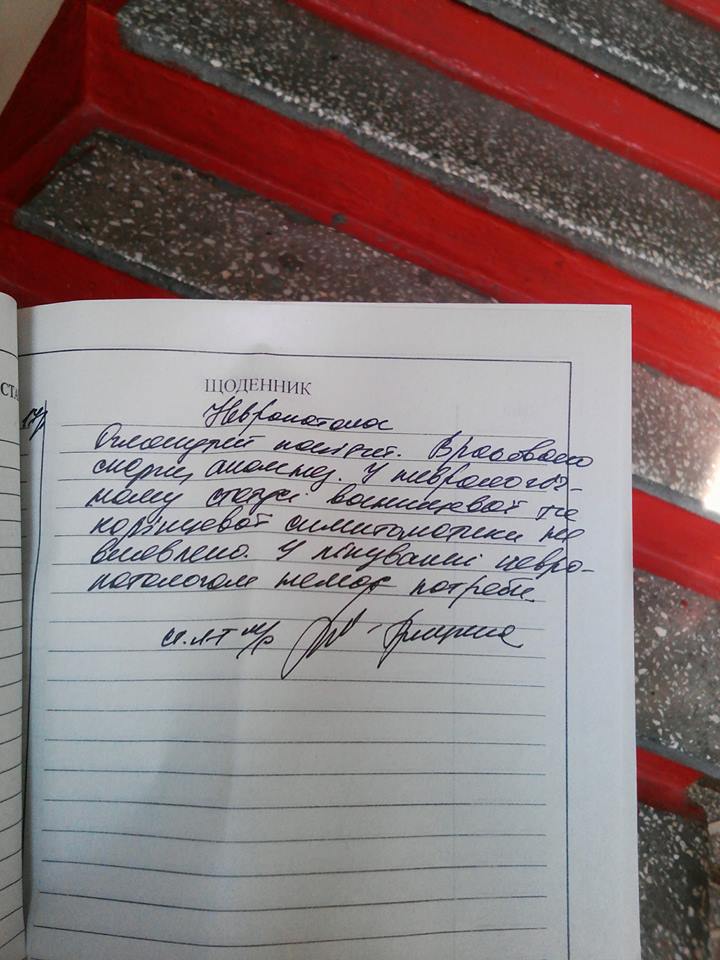 СТА
ЩОДЕННИК
Невропатолог
Оглянутий повторно. Враховано
скарги, анамнез. У неврологіч-
ному статусі вогнищевої та
корінцевої симптоматики не
виявлено. У лікуванні невро-
патологом немає потреби.
м/с